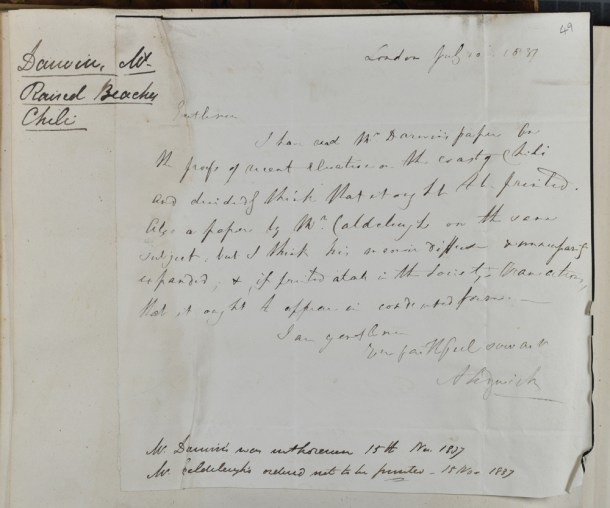 49
Darwin, Mr
Raised Beaches
Chili
London July 20 1837
Gentlemen
I have read Mr Darwin's paper on
the proofs of recent elevation on the coast of Chili
and decidedly think that it ought to be printed.
Also a paper by Mr Caldcleugh on the same
subject, but I think his memoir diffuse &
expanded; & if printed at all in the Society's Transactions,
that it ought to appear in condensed form
I am gentlemen
your faithful servant
A Sedgwick
Mr Darwin's was 15th Nov. 1837
Mr Caldcleugh's ordered not to be printed - 15 Nov 1837